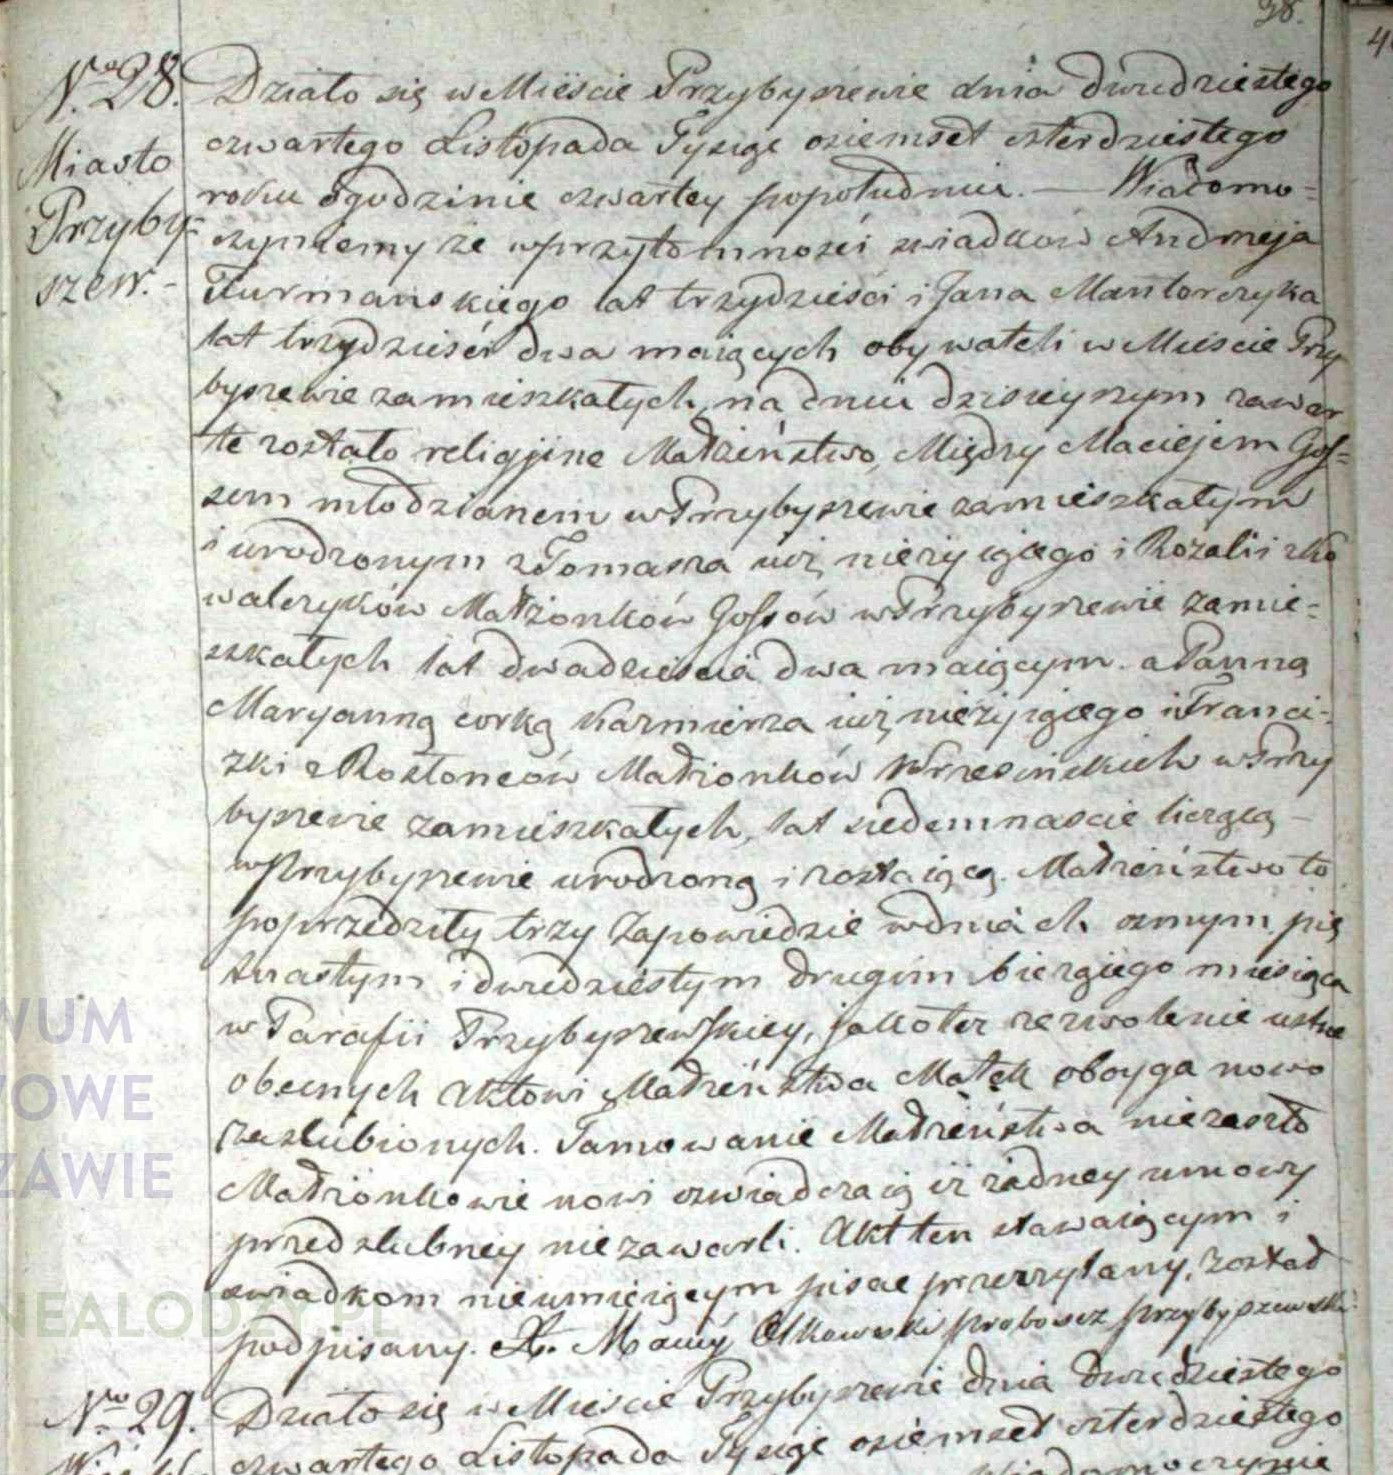 38.
Nro 28. Działo się w Mieście Przybyszewie dnia dwudziestego
czwartego Listopada Tysiąc osiemset czterdziestego
Miasto
roku o godzinie czwartey popołudniu. — Wiadomo=
Przyby=
czyniemy że w przytomności swiadków Andrzeja
szew.-
Furmańskiego lat trzydzieści i Jana Mantorczyka
lat trzydzieści dwa maiących obywateli w Mieście Przy
byszewie zamieszkałych, na dniu dzisieyszym zawar
te zostało religijne Małżeństwo, Między Maciejem Gos=
sem młodzianem w Przybyszewie zamieszkałym
i urodzonym z Tomasza iuż nieżyiącego i Rozalii z Ko
walczyków Małżonków Gossów w Przybyszewie zamie=
szkałych lat dwadzieścia dwa maiącym. a Panną
Maryanną corką Kazmierza iuż nieżyiącego i Franci=
zki z Rostońców Małżonków Wrzesińskich w Przy
byszewie zamieszkałych, lat siedemnascie liczącą –
w Przybyszewie urodzoną i zostaiącą. Małżeństwo to
poprzedziły trzy Zapowiedzie w dniach osmym pię
tnastym i dwudziestym drugim bieżącego miesiąca
w Parafii Przybyszewskiey, jakoteż zezwolenie ustne
obecnych Aktowi Małżeństwa Matek oboyga nowo
zaslubionych. Tamowanie Małżeństwa niezaszło
Małżonkowie nowi oswiadczaią iż żadney umowy
przedslubney niezawarli. Akt ten stawaiącym i
swiadkom nieumieiącym pisać przeczytany, został
podpisany. X. Olkowski proboszcz przybyszewski
Nro 29. Działo się w Mieście Przybyszewie dnia dwudziestego
czwartego Listopada Tysiąc osiemset czterdziestego
WUM
WOWE
ZAWIE
NEALODZY.PL